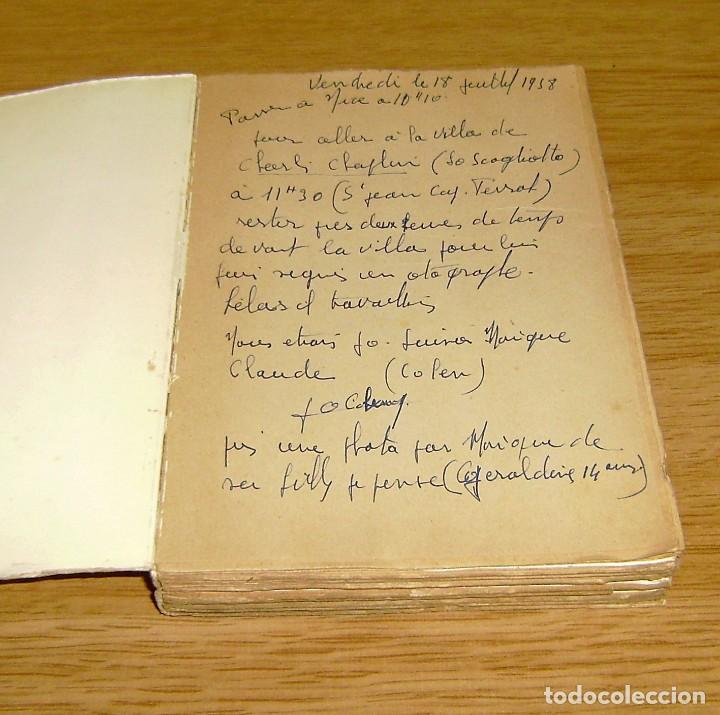 Vendredi le 18 juillet 1958
Passer a Nice a 10H10.
pour aller à la villa de
Charli Chaplin (Lo Scogliotto)
à 11H30 (St jean Cap. Ferrat)
rester pres deux heures de temps
devant la villa pour lui
fair signer un otographe.
hélas il travaillais
Nous etions Jo. Monique
Claude (Colen)
pis une photo par Monique de
sa filly je pense (Geraldine 14 ans)
todocoleccion